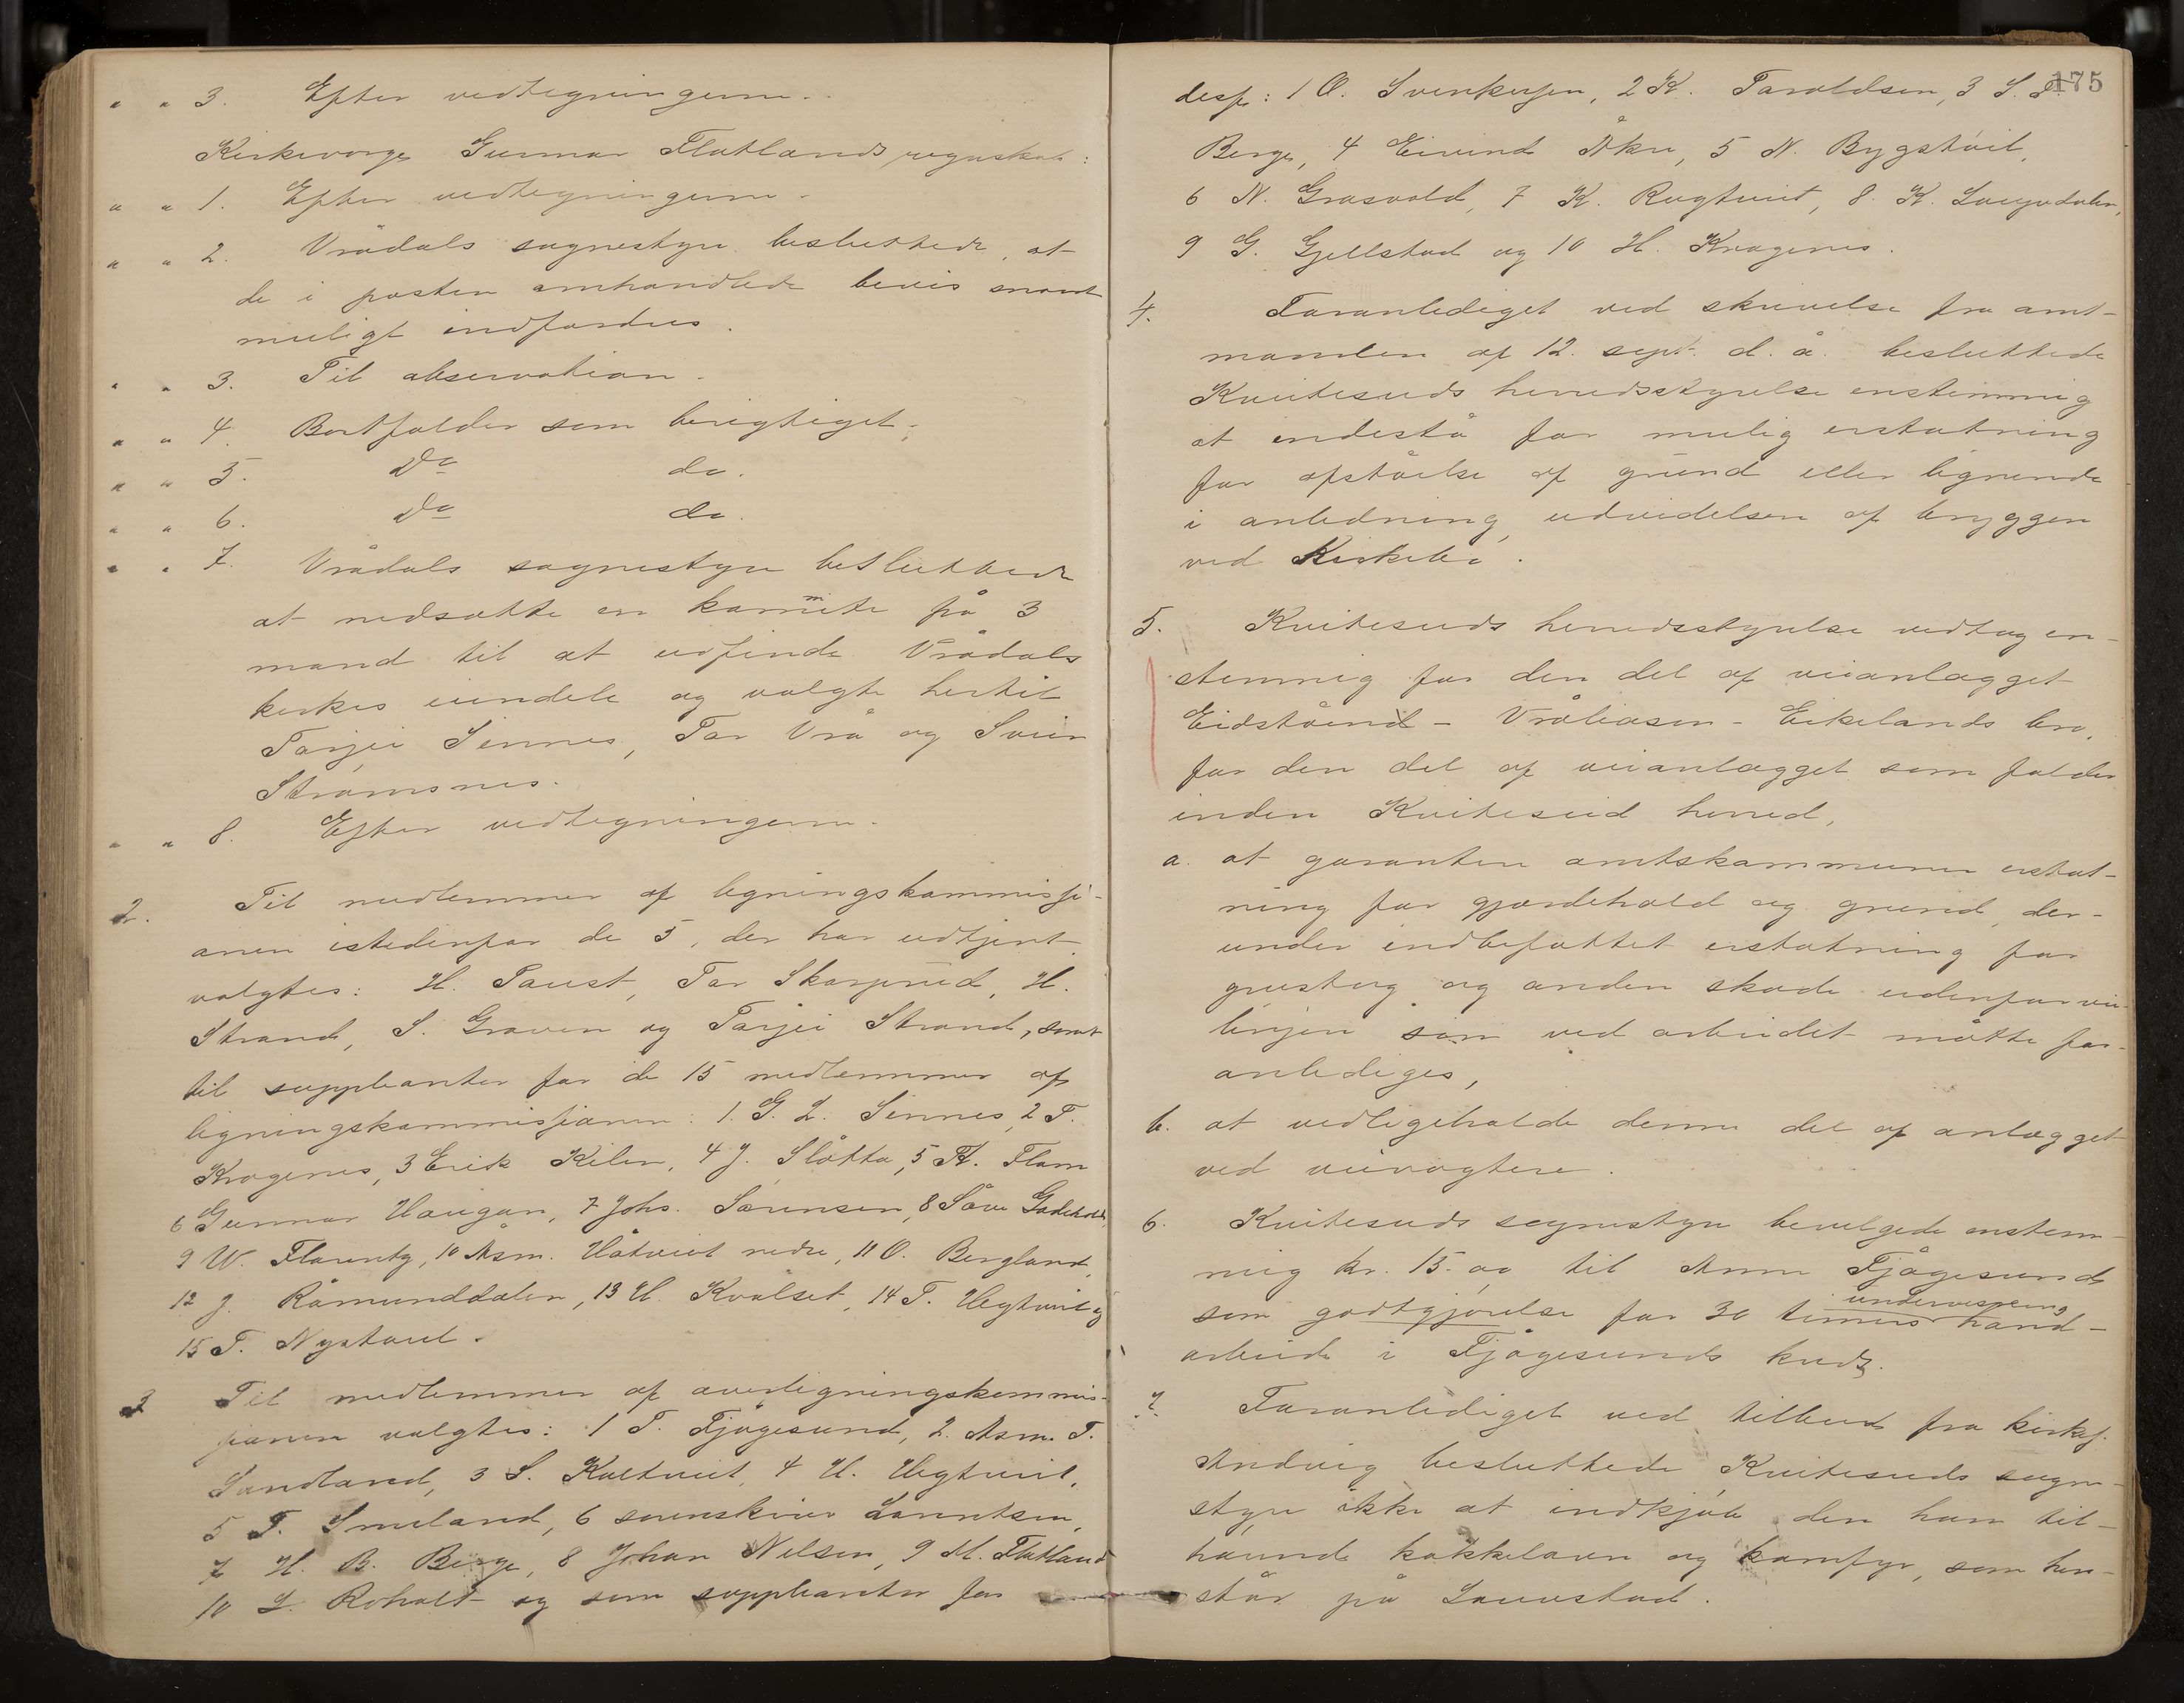 " " 3. Efter vedtegningerne.
Kirkeverge Gunnar Flatlands regnskab:
" " 1. Efter vedtegningerne.
" " 2. Vrådals sognestyre besluttede, at
de i posten omhandlede bevis snart
muligt indfordres.
" " 3. Til observation.
" " 4. Bortfalder som berigtiget.
" " 5. Do do.
" " 6. Do do.
" " 7. Vrådals sognestyre besluttede
at nedsætte en komite på 3
mand til at udfinde Vrådals
kirkes eiendele og valgte hertil
Tarjei Sinnes, Tor Vrå og Svein
Strømsnes.
" " 8. Efter vedtegningerne.
2. Til medlemmer af ligningskommissi-
onen istedenfor de 5, der har udtjent
valgtes: H. Paust, Tor Skarprud, H.
Strand, S. Graven og Tarjei Strand, samt
til suppleanter for de 15 medlemmer af
ligningskommissionen: 1. G. L. Sinnes, 2 T.
Kragenes, 3 Erik Kilen, 4 J. Slåtta, 5 A. Flom
6 Gunnar Haugan, 7 Johs. Sørensen, 8 Såve
9 W. Florentz, 10 Asm. Håtveit nedre, 11 O. Bergland,
12 J. Råmunddalen, 13 H. Kvålset, 14 T. Hegtveit og
15 T. Nystaul.
3 Til medlemmer af overligningskommis-
sionen valgtes: 1 T. Fjågesund, 2. Asm. T.
Sundland, 3 S. Kultveit, 4 H. Hegtveit,
5 T. Smeland, 6 sorenskriver Lorentsen,
7 H. B. Berge, 8 Johan Nilsen, 9 M. Flatland
10 L. Roholt og som suppleanter for
175
desse: 1 O. Svenkesen, 2 K. Taroldsen, 3 S. T.
Berge, 4 Eivind Åkre, 5 N. Bygstøil,
6 N. Grasvold, 7 K. Rugtveit, 8 K. Lauvdalen,
9 G. Gjellstad og 10 H. Kragenes.
4. Foranlediget ved skrivelse fra amt-
manden af 12. sept. d. å. besluttede
Kviteseids herredsstyrelse enstemmig
at indestå for mulig erstatning
for afståelse af grund eller lignende
i anledning udvidelsen af bryggen
ved Kirkebø.
5. Kviteseids herredsstyrelse vedtog en-
stemmig for den del af veianlægget
Eidståend - Vråliosen - Eikelands bro,
for den del af veianlægget som falder
inden Kviteseid herred,
a. at garantere amtskommunen erstat-
ning for gjærdehold og grund, der-
under indbefattet erstatning for
grustag og anden skade udenfor vei-
linjen som ved arbeidet måtte for-
anlediges,
b. at vedligeholde denne del af anlægget
ved veivogtere.
6. Kviteseids sognestyre bevilgede enstem-
mig kr. 15.00 til Anne Fjågesund
som godtgjørelse for 30 timers undervisning hånd-
arbeide i Fjågesunds kreds.
7. Foranlediget ved tilbud fra kirkes.
Andvig besluttede Kviteseids sogne-
styre ikke at indkjøbe den ham til-
hørende kakkelovn og komfyr, som hen-
står på Lauvstad.